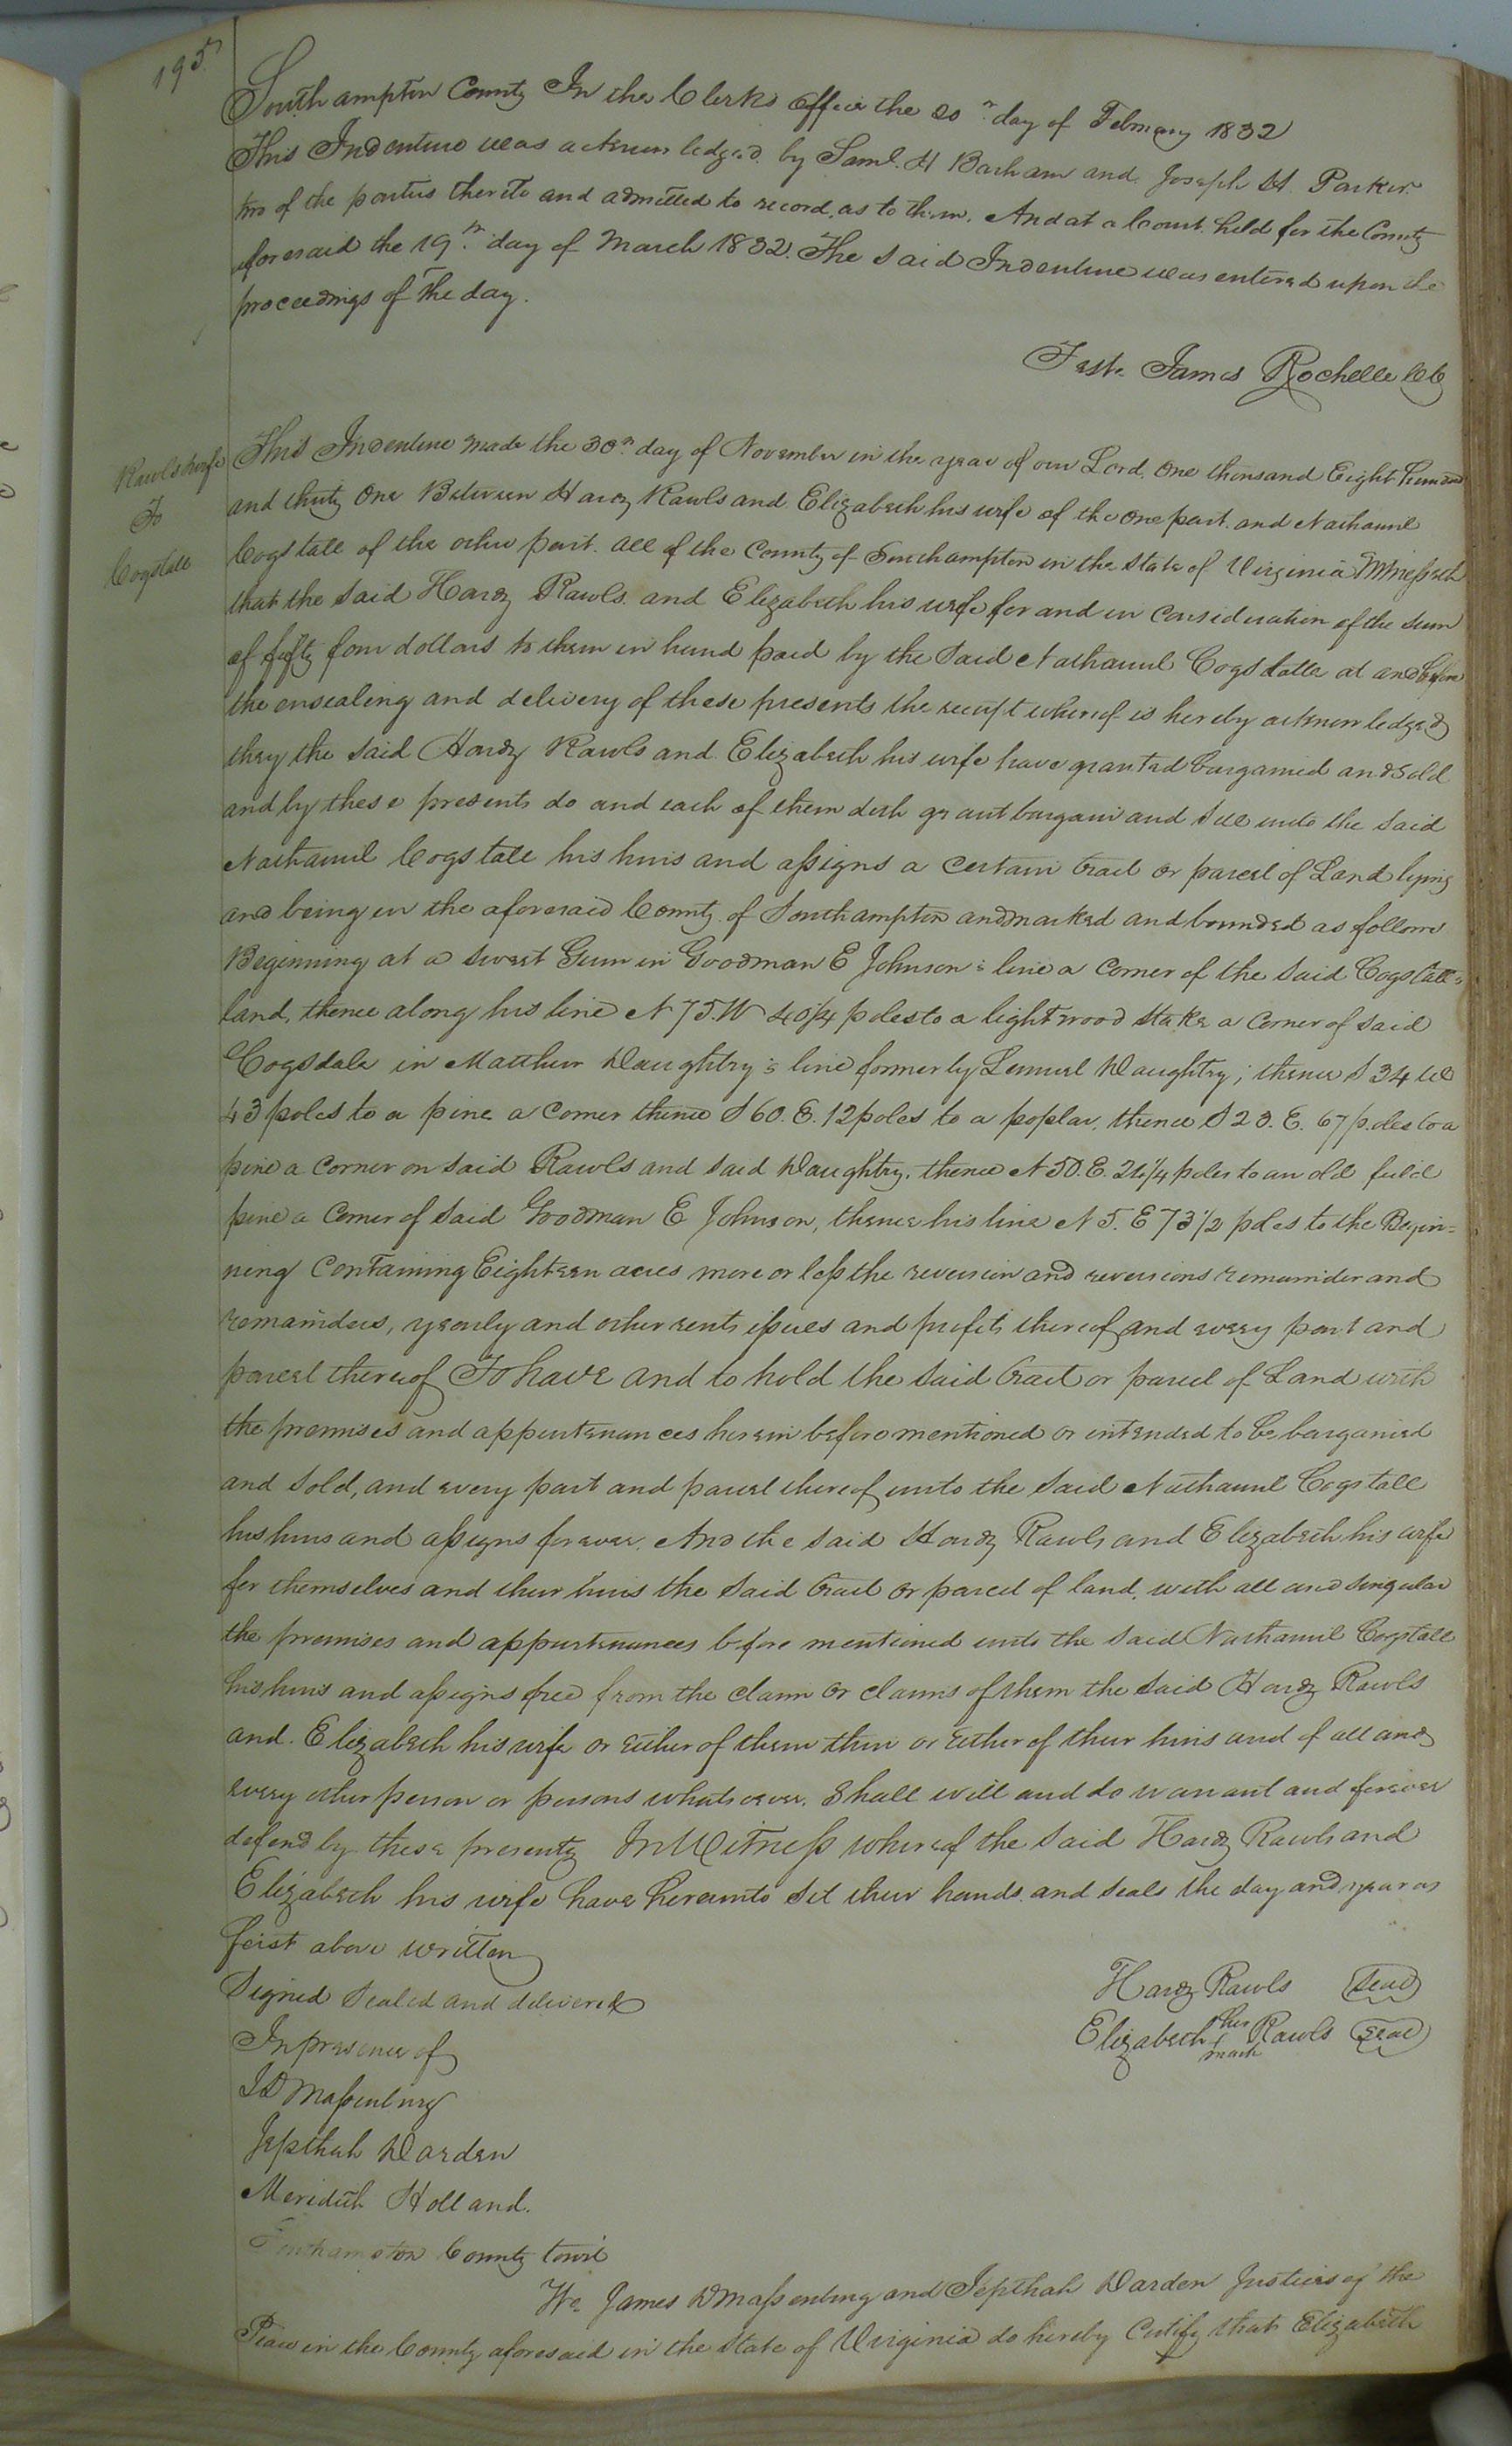 195
Southampton County In the Clerks Office the 20th day of February 1832
This Indenture was acknowledged by Saml. H Barham and Joseph H. Parker
two of the parties thereto and admitted to record, as to them. And at a Court held for the County
aforesaid the 19th day of March 1832. The said Indenture was entered upon the
proceedings of the day.
Teste James Rochelle CC
Rawls & wife
To
Cogstall
This Indenture made the 30th day of November in the year of our Lord One thousand Eight hundred
and thirty One Between Hardy Rawls and Elizabeth his wife of the one part and Nathaniel
Cogstall of the other part. all of the County of Southampton in the State of Virginia Witnesseth
that the said Hardy Rawls and Elizabeth his wife for and in consideration of the sum
of fifty four dollars to them in hand paid by the said Nathaniel Cogstalle at and before
the ensealing and delivery of these presents the receipt whereof is hereby acknowledged
they the said Hardy Rawls and Elizabeth his wife have granted bargained and sold
and by these presents do and each of them doth grant bargain and sell unto the said
Nathaniel Cogstall his heirs and assigns a certain tract or parcel of Land lying
and being in the aforesaid County of Southampton and marked and bounded as follows
Beginning at a sweet Gum in Goodman E Johnson's line a corner of the said Cogstall's
land, thence along his line N 75. W 40 1/4 poles to a lightwood stake a corner of said
Cogsdale in Matthew Daughtry's line formerly Lemuel Daughtry; thence S 34 W
43 poles to a pine a corner thence S 60. E. 12 poles to a poplar, thence S 23. E. 67 poles to a
pine a corner on said Rawls and said Daughtry. thence N 50. E. poles to an old field
pine a corner of said Goodman E Johnson, thence his line N 5. E 73 1/2 poles to the Begin=
ning Containing Eighteen acres more or less the reversion and reversions remainder and
remainders, yearly and other rents issues and profits thereof and every part and
parcel thereof To have and to hold the said tract or parcel of Land with
the premises and appurtenances herein before mentioned or intended to be bargained
and sold, and every part and parcel thereof unto the said Nathaniel Cogstall
his heirs and assigns forever. And the said Hardy Rawls and Elizabeth his wife
for themselves and their heirs the said tract or parcel of land, with all and singular
the premises and appurtenances before mentioned unto the said Nathaniel Cogstall
his heirs and assigns free from the claim or claims of them the said Hardy Rawls
and Elizabeth his wife or either of them their or either of their heirs and of all and
every other person or persons whatsoever. Shall will and do warrant and forever
defend by these presents In Witness whereof the said Hardy Rawls and
Elizabeth his wife have hereunto set their hands and seals the day and year as
first above written
Signed Sealed and delivered
In presence of
J D Massenburg
Jepthah Darden
Meridith Holland.
Hardy Rawls Seal
Elizabeth her mark Rawls Seal
Southampton County towit
We James D Massenburg and Jepthah Darden Justices of the
Peace in the County aforesaid in the State of Virginia do hereby Certify that Elizabeth